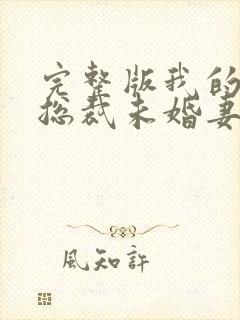 完整版我的
总裁未婚妻
風知許